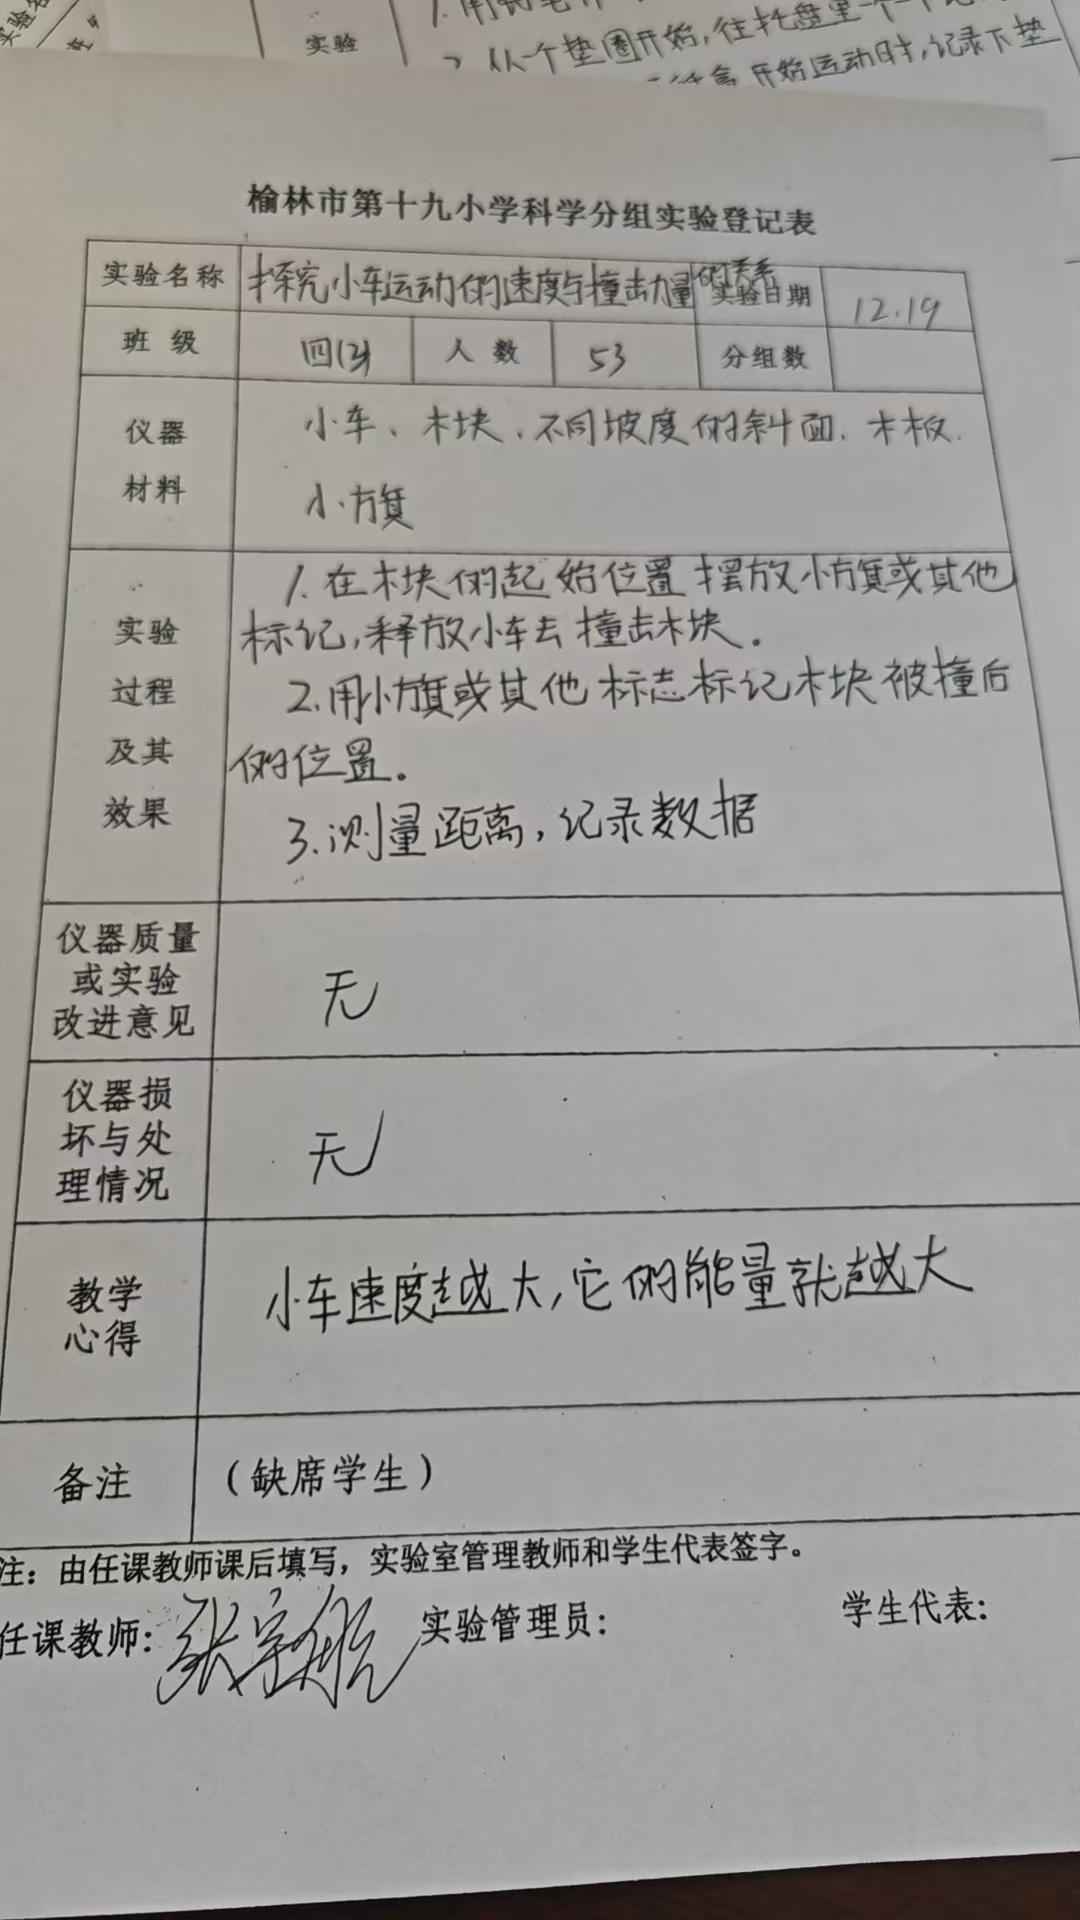 实验
从一个垫圈开始,往托盘里一个个
开始运动时,记录下垫
榆林市第十九小学科学分组实验登记表
实验名称 探究小车运动的速度与撞击力量的关系 实验日期 12.19
班级 人数 53 分组数
仪器材料 小车、木块、不同坡度的斜面、木板、
小方旗
实验过程及其效果 1.在木块的起始位置摆放小方旗或其他
标记,释放小车去撞击木块。
2.用小方旗或其他标志标记木块被撞后
的位置。
3.测量距离,记录数据
仪器质量或实验改进意见 无
仪器损坏与处理情况 无
教学心得 小车速度越大,它的能量就越大
备注 (缺席学生)
注:由任课教师课后填写,实验室管理教师和学生代表签字。
任课教师:张宇航 实验管理员: 学生代表: